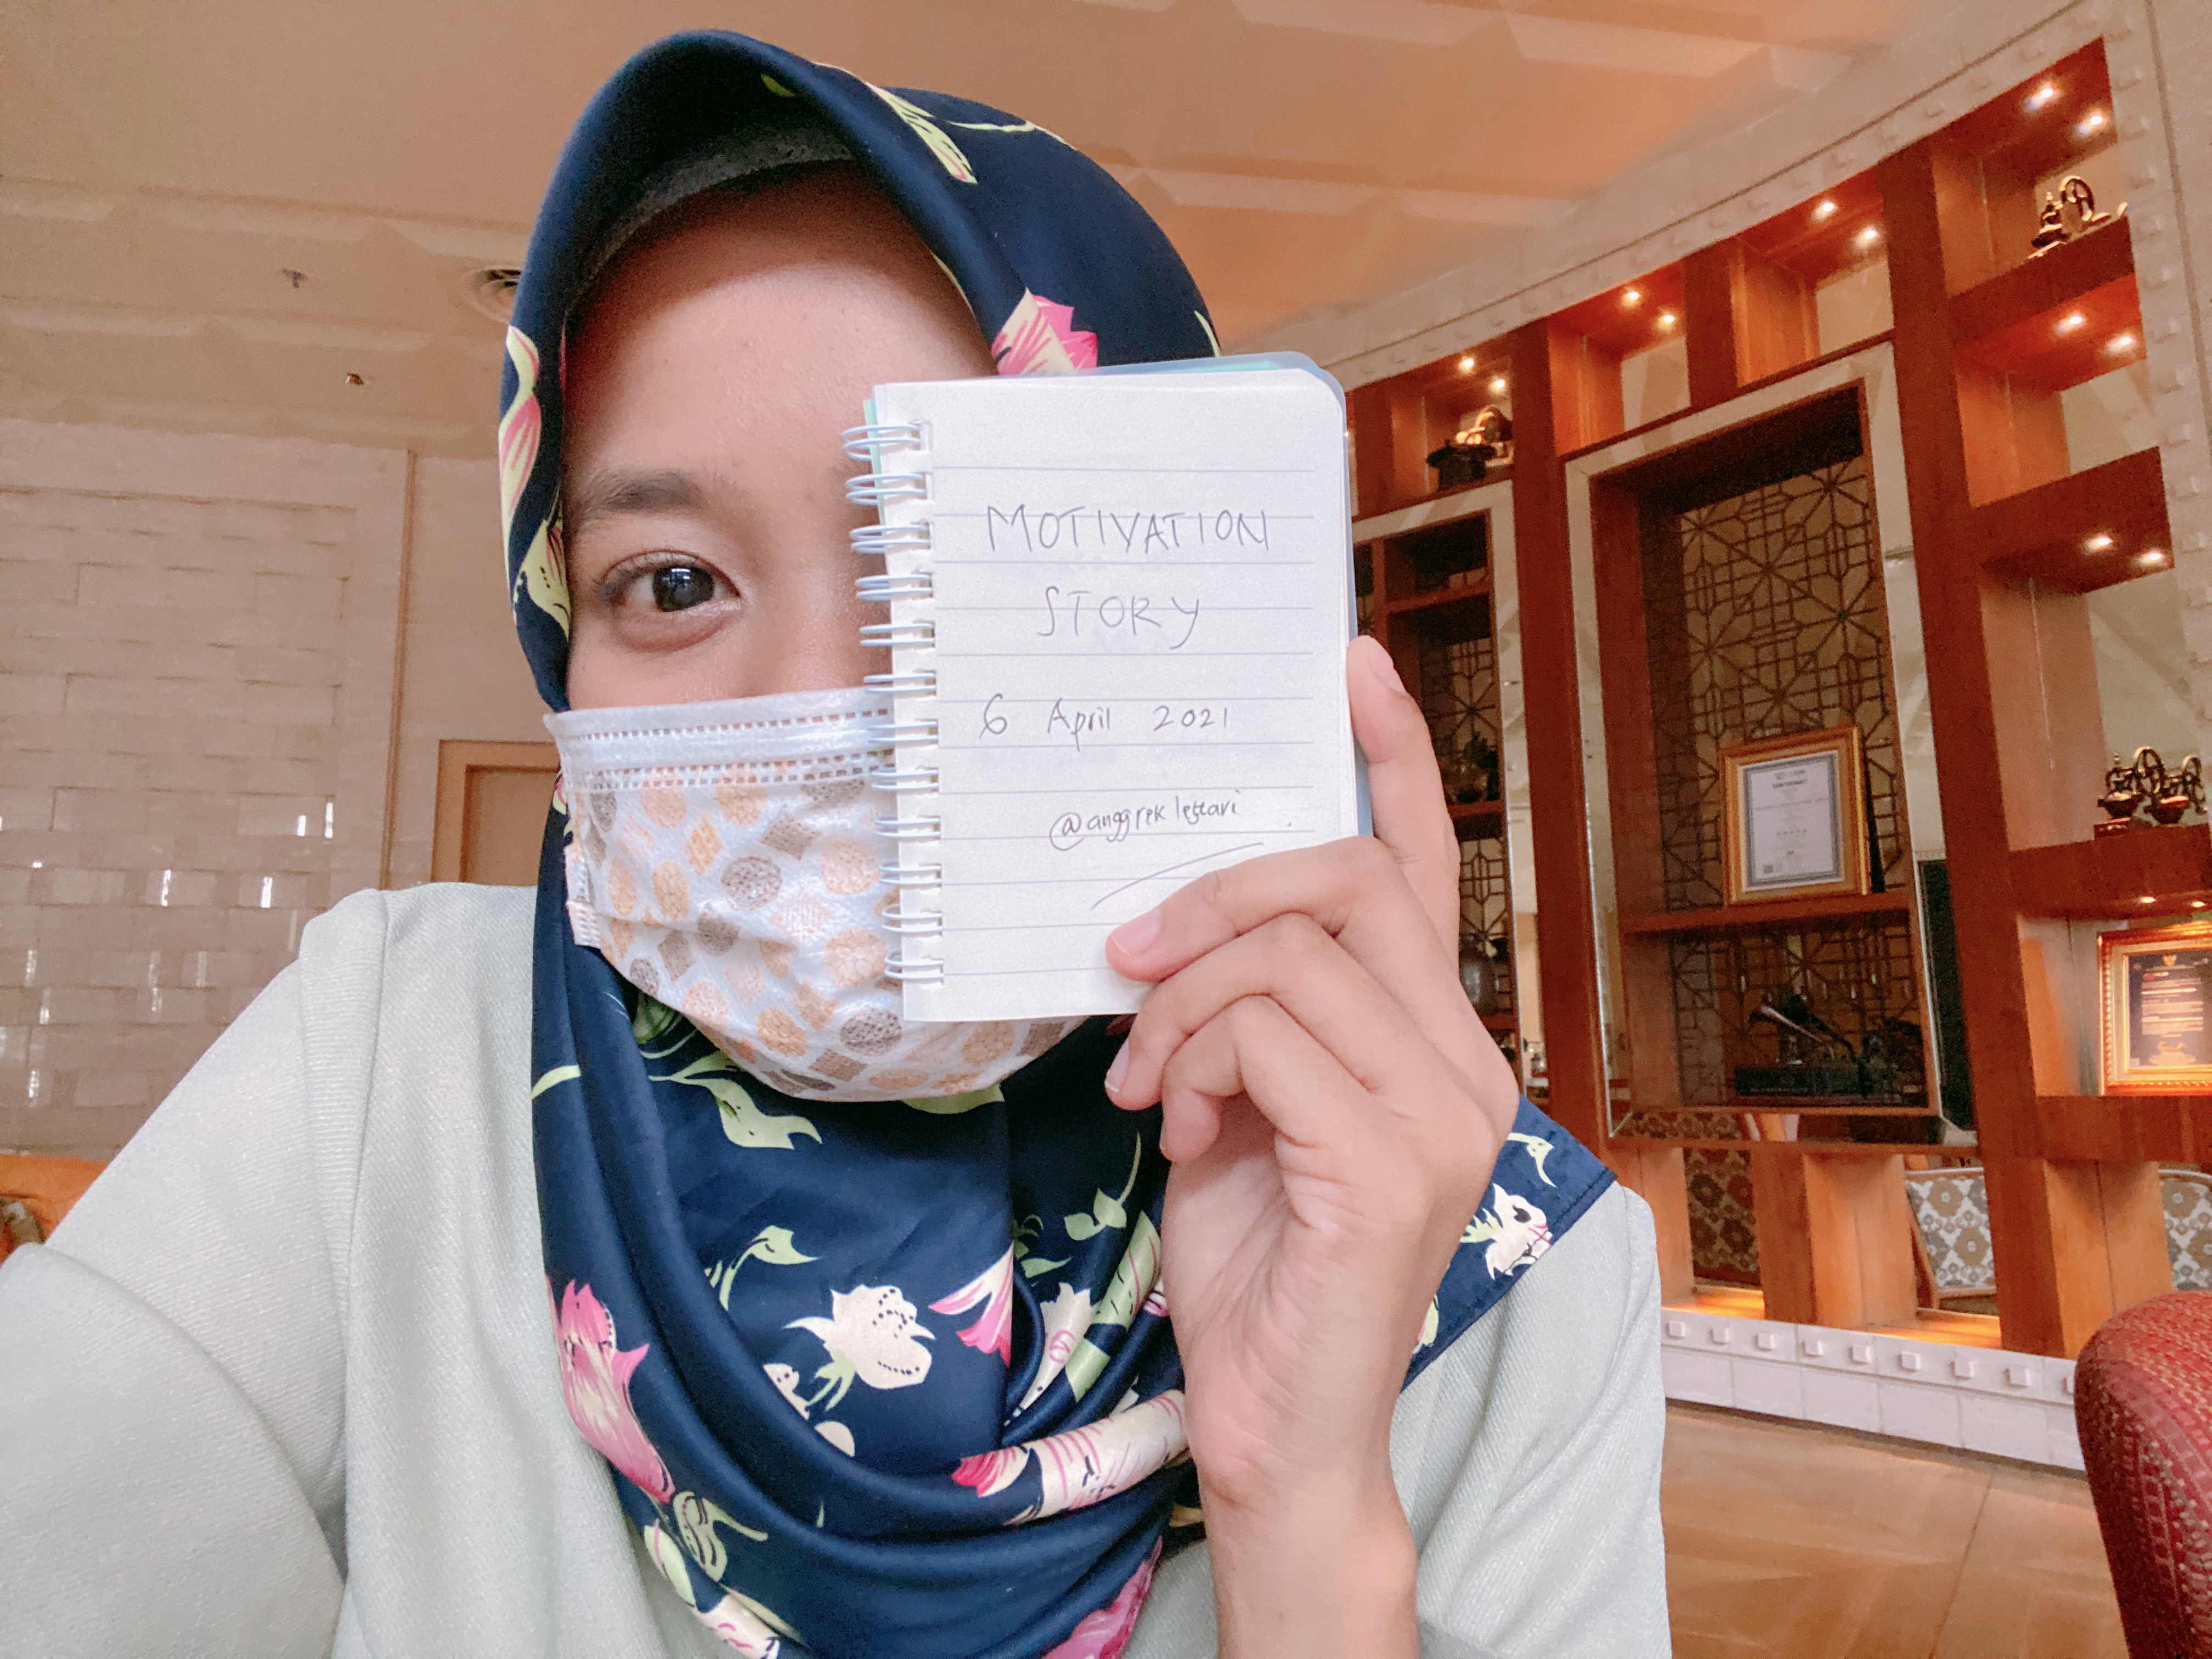 MOTIVATION
STORY
6 April 2021
@anggrek lestari
SERTIFIKAT